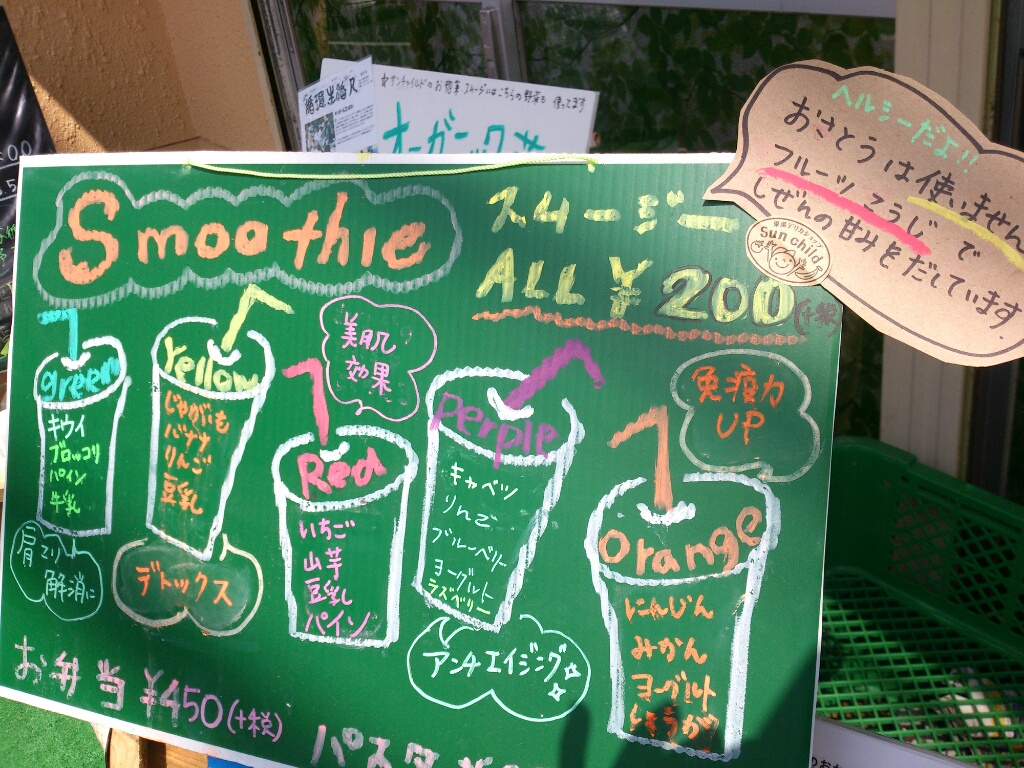 循環生活人
サンチャイルドのお惣菜 スムージーにはこちらの野菜を使ってます
オーガニック
ヘルシーだよ!!
おさとうは使いません
フルーツ こうじで
しぜんの甘みをだしています
Sun child
Smoothie
スムージー
ALL ¥200(+税)
green
キウイ
ブロッコリ
パイン
牛乳
肩こり
解消に
Yellow
じゃがいも
バナナ
りんご
豆乳
デトックス
美肌
効果
Red
いちご
山芋
豆乳
パイン
Perple
キャベツ
りんご
ブルーベリー
ヨーグルト
ラズベリー
アンチエイジング
免疫力
UP
orange
にんじん
みかん
ヨーグルト
しょうが
お弁当 ¥450(+税)
パスタ